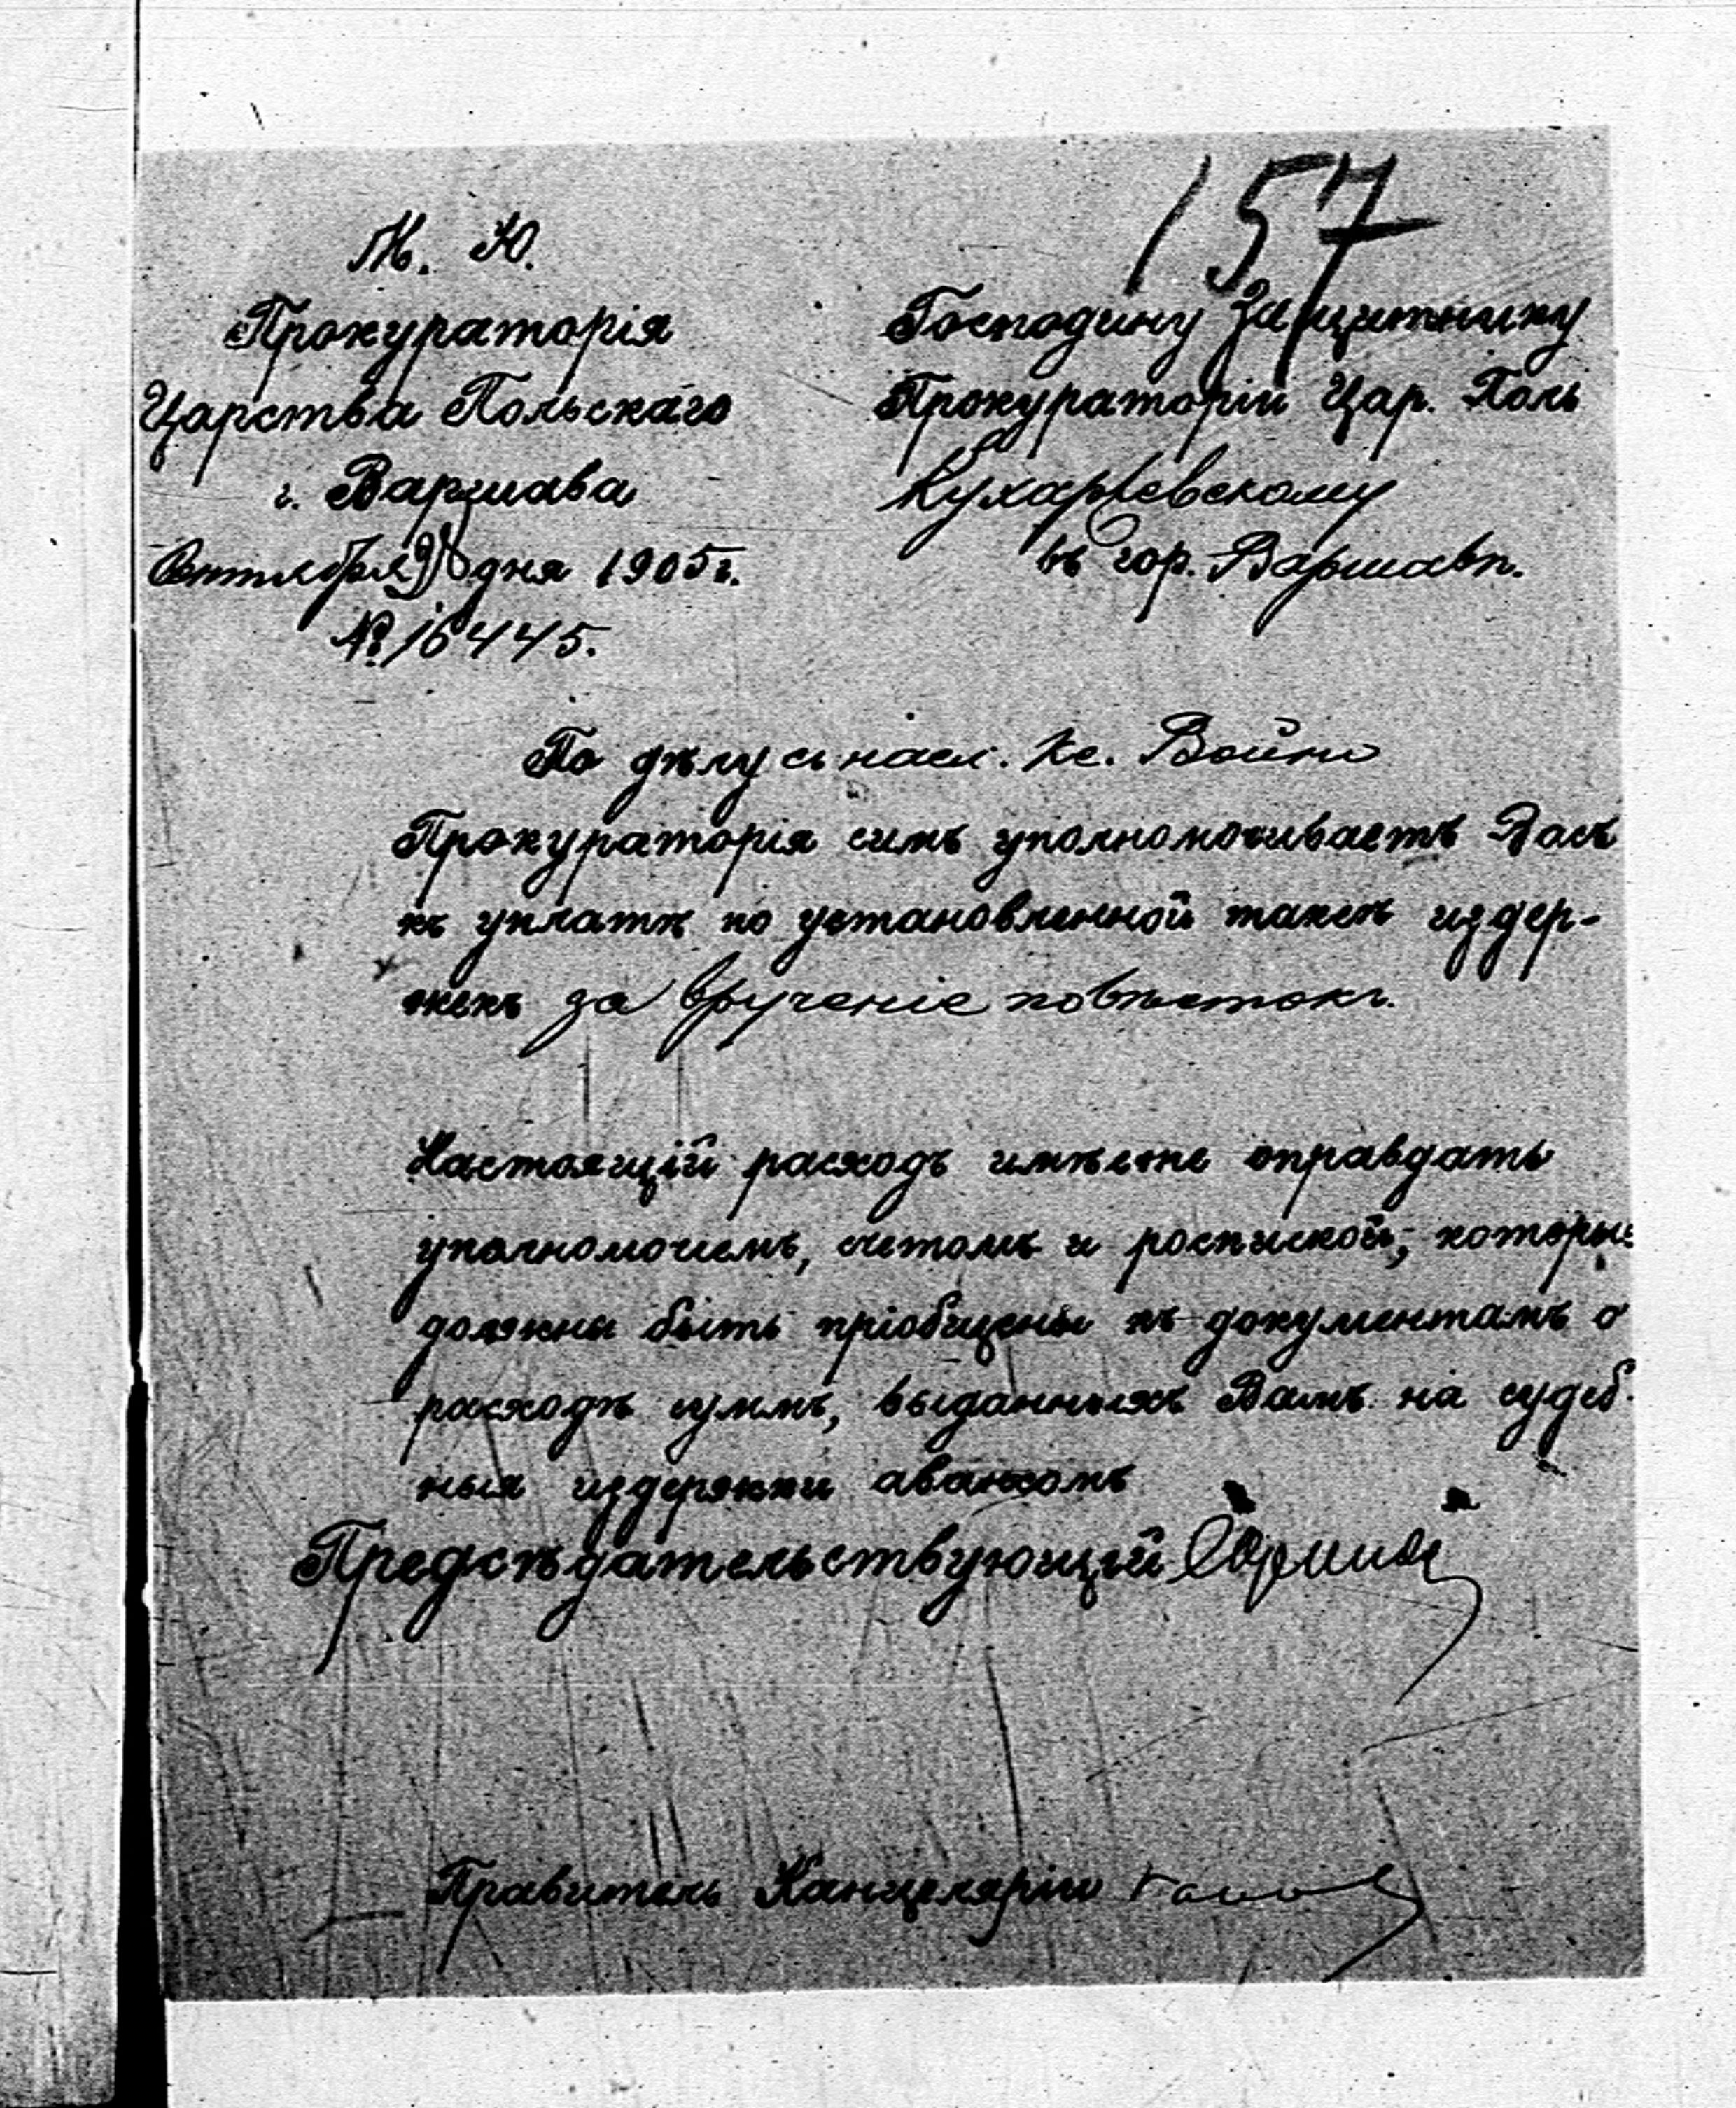 157
М. Ю.
Прокураторія
Царства Польскаго
г. Варшава
дня 1905 г.
№ 16445.
Господину Защитнику
Прокураторіи Цар. Поль
Кухаржевскому
въ гор. Варшавѣ.
По дѣлу съ насл. Кс. Войно
Прокураторія симъ уполномочиваетъ Васъ
къ уплатѣ по установленной таксѣ издер-
жекъ за врученіе повѣстокъ.
Настоящій расходъ имѣете оправдать
уполномочіемъ, счетомъ и роспиской, которые
должны быть пріобщены къ документамъ о
расходѣ суммъ, выданныхъ Вамъ на судеб-
ныя издержки авансомъ
Предсѣдательствующій
Правитель Канцеляріи